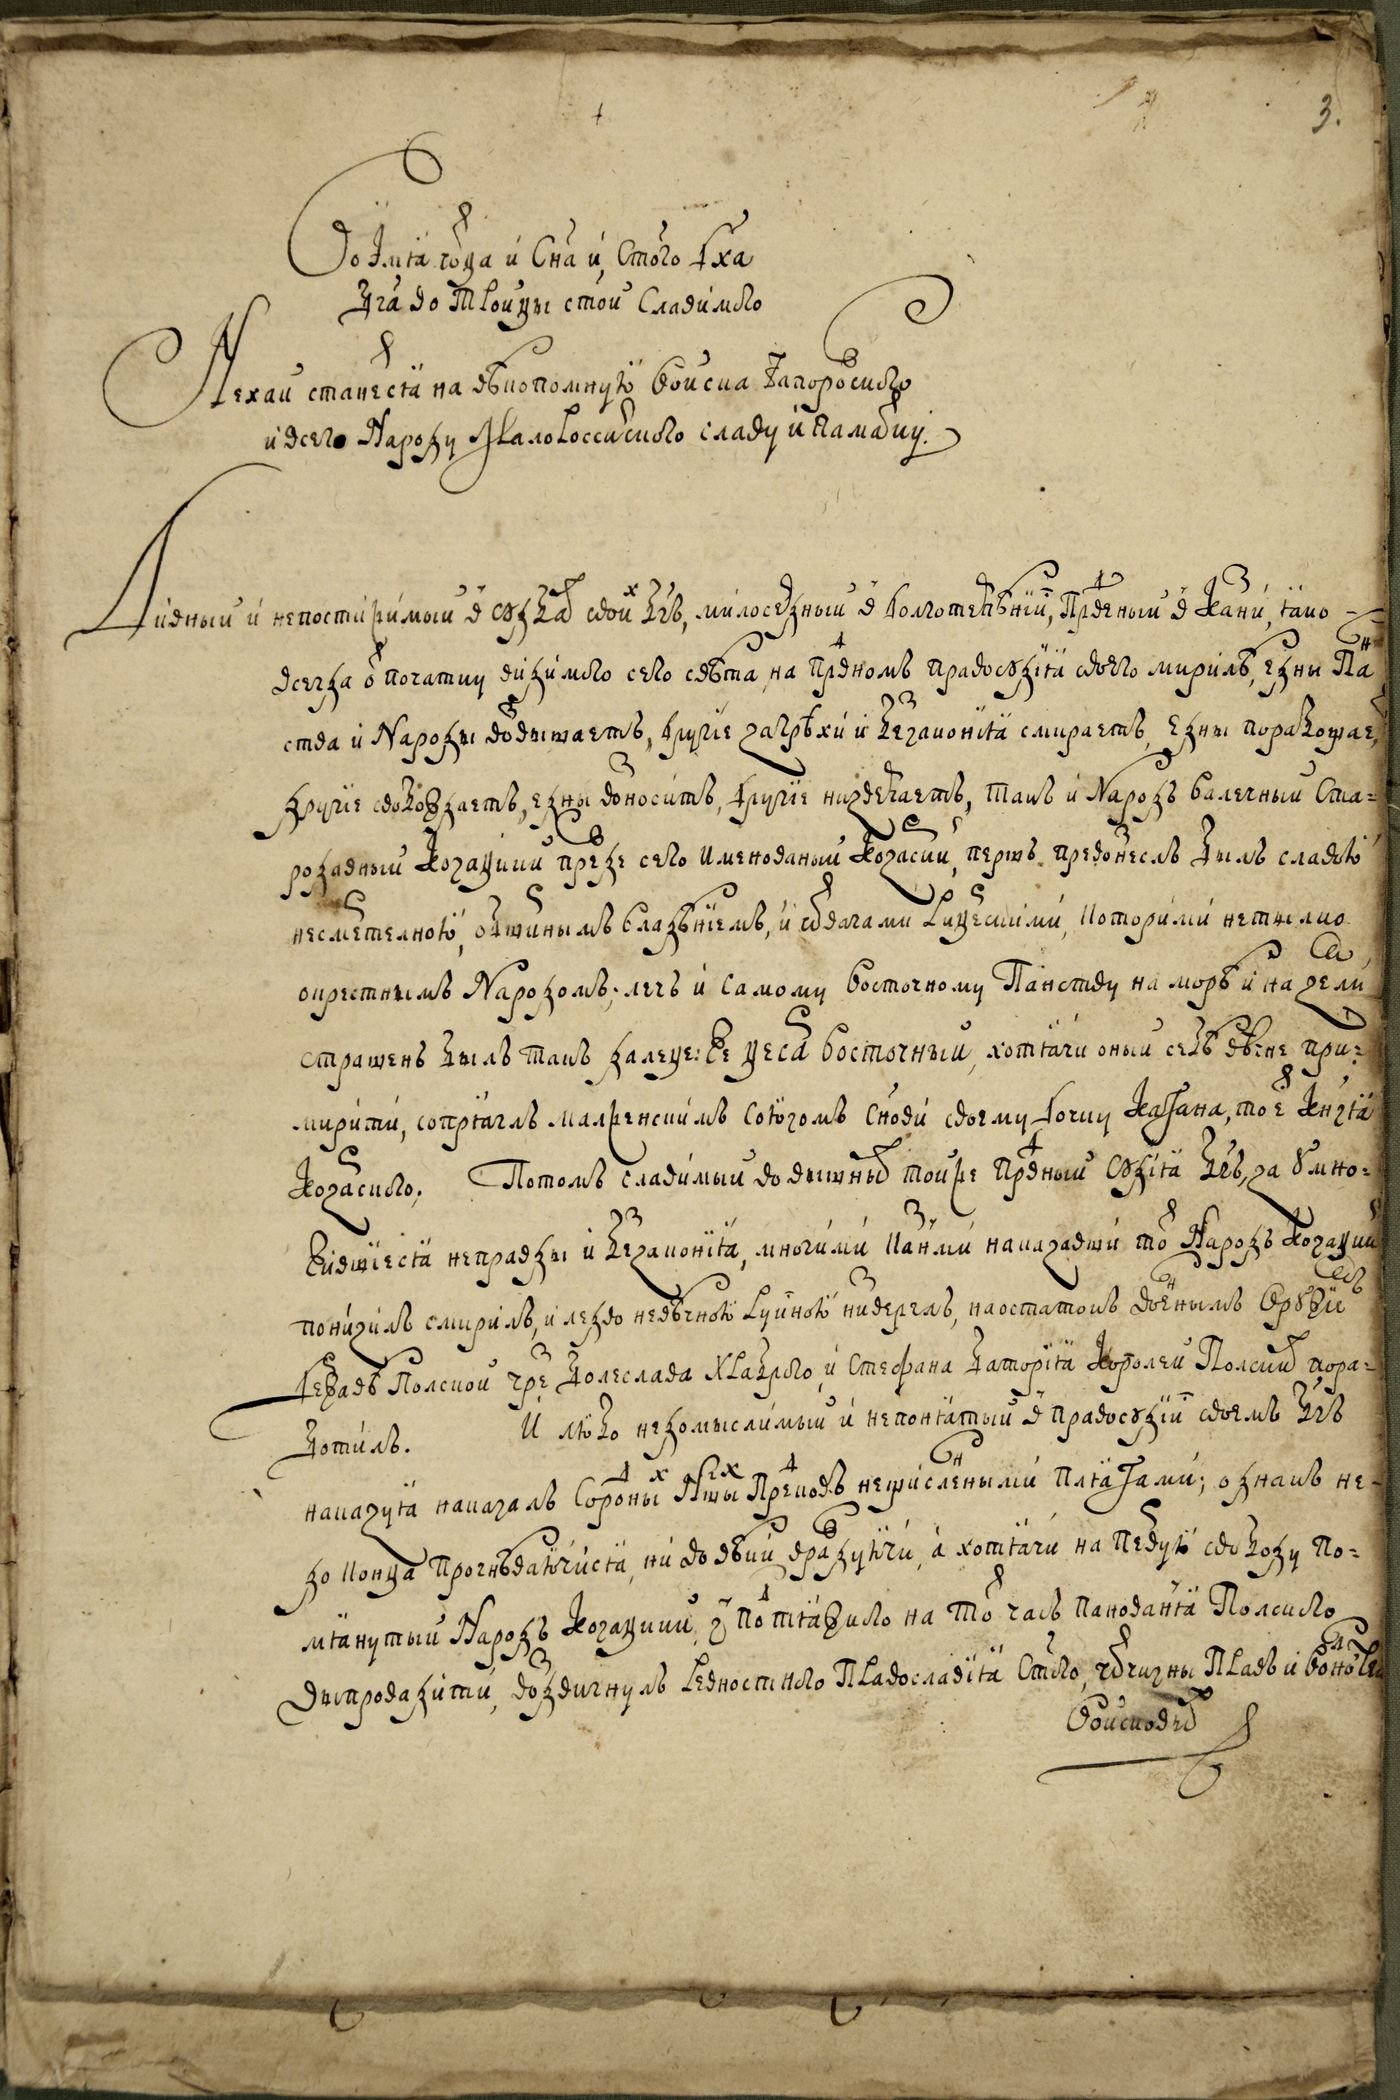 3.
Во Имѧ Ѡца и Сна и Стого Дха
Бга во Тройцы стой Славимого
Нехай станется на вѣкопомную Войска Запорозкого
и всего Народу Малороссийского славу и памятку.
Дивный и непостижимый в судбах своих Бгъ, милосердный в долготерпѣнїи, Праведный в Казни, яко
всегда ѡ початку видимого сего свѣта, на праведномъ правосудїя своего мирилѣ, едны Пан
ства и Народы возвышаетъ, другїе за грѣхи и беззаконїя смиряетъ, едны порабощает,
другїе свобождаетъ, едны возноситъ, другїе низвергаетъ, такъ и Народъ валечный Ста=
рожитный Козацкий преже сего именованый Козарский, перш превознеслъ былъ славою
несмертелною, обширнымъ владѣнїемъ, и отвагами рыцерскими, которими не тылко
окрестнымъ Народомъ, лечъ и самому Восточному Панству на морѣ и на земли
страшенъ былъ такъ далеце: же Цесар Восточный, хотячи оный себѣ вѣчне при=
мирити, сопряглъ малженскимъ союзомъ Снови своему дочку Кагана, то е Князя
Козарского. Потомъ славимый во вышних тойже праведный Судїя Бгъ, за умно=
жившїеся неправды и беззаконїя, многими казнми наказавши той Народъ Козацкий
понизилъ смирилъ, и ледво не вѣчною руиною низверглъ, наостатокъ военнымъ Оружїемъ
державѣ Полской чрез Болеслава Храброго, и Стефана Баторїя Королей Полских пора=
ботилъ. И любо недомыслимый и непонятый в правосудїи своемъ Бгъ
наказуя наказалъ
до конца прогнѣваючися, ни во вѣки враждуючи, а хотячи на первую свободу по=
мянутый Народъ Козацкий, з под тяжкого на той часъ панованя Полского
випровадити, воздвигнулъ ревностного Православїя Стого, отчизны Правъ и волностей
Войсковых